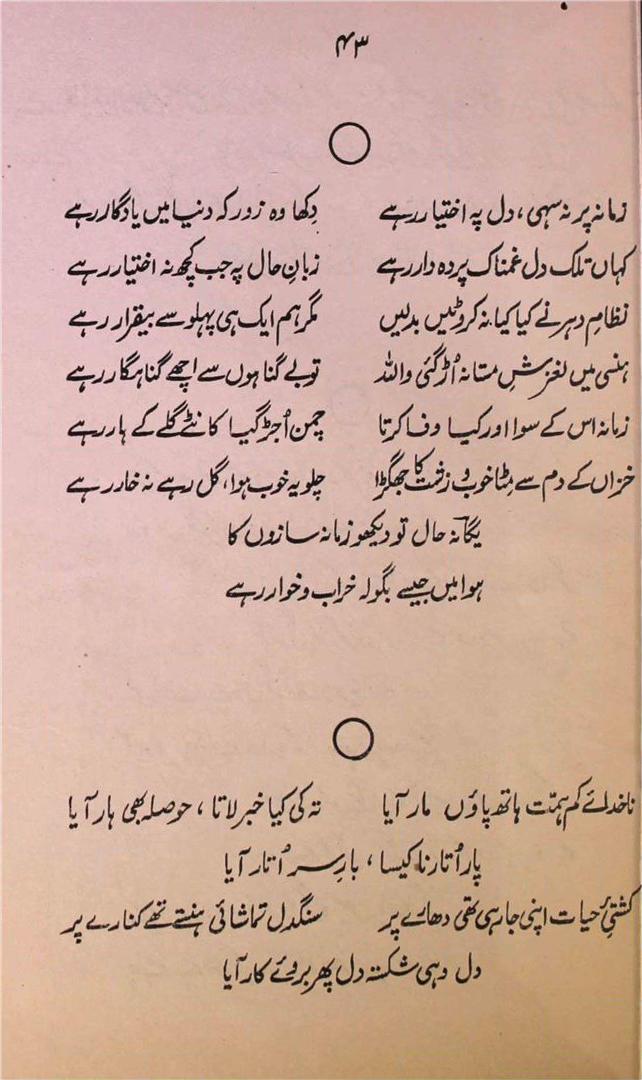 ۴۳
زمانہ پر نہ سہی، دل پہ اختیار رہے دِکھا وہ زور کہ دنیا میں یادگار رہے
کہاں تلک دل غمناک پردہ دار رہے زبانِ حال پہ جب کچھ نہ اختیار رہے
نظامِ دہر نے کیا کیا نہ کروٹیں بدلیں مگر ہم ایک ہی پہلو سے بیقرار رہے
ہنسی میں لغزشِ مستانہ اُڑ گئی واللہ تو بے گناہوں سے اچھے گناہگار رہے
زمانہ اس کے سوا اور کیا وفا کرتا چمن اُجڑ گیا کانٹے گلے کے ہار رہے
خزاں کے دم سے مِٹا خوب و زشت کا جھگڑا چلو یہ خوب ہوا، گل رہے نہ خار رہے
یگانہ حال تو دیکھو زمانہ سازوں کا
ہوا میں جیسے بگولہ خراب و خوار رہے
ناخدائے کم ہمّت ہاتھ پاؤں مار آیا تہ کی کیا خبر لاتا، حوصلہ بھی ہار آیا
پار اُتارنا کیسا، بارِ سر اُتار آیا
کشتیٔ حیات اپنی جا رہی تھی دھارے پر سنگدل تماشائی ہنستے تھے کنارے پر
دل وہی شکستہ دل پھر بروئے کار آیا